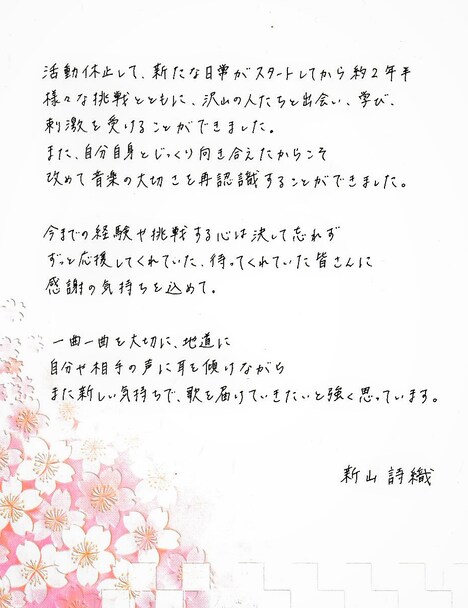 活動休止して、新たな日常がスタートしてから約2年半
様々な挑戦とともに、沢山の人たちと出会い、学び、
刺激を受けることができました。
また、自分自身とじっくり向き合えたからこそ
改めて音楽の大切さを再認識することができました。
今までの経験や挑戦する心は決して忘れず
ずっと応援してくれていた、待ってくれていた皆さんに
感謝の気持ちを込めて。
一曲一曲を大切に、地道に
自分や相手の声に耳を傾けながら
また新しい気持ちで、歌を届けていきたいと強く思っています。
新山詩織